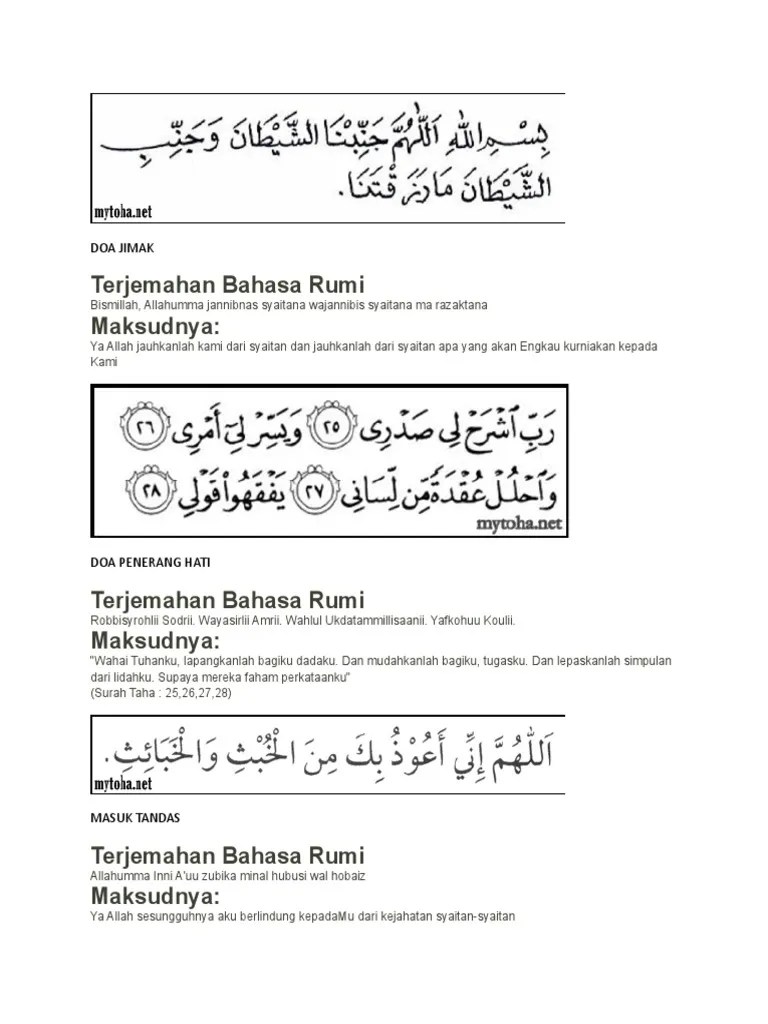 بِسْمِ اللهِ اَللّٰهُمَّ جَنِّبْنَا الشَّيْطَانَ وَجَنِّبِ
الشَّيْطَانَ مَا رَزَقْتَنَا.
mytoha.net
DOA JIMAK
Terjemahan Bahasa Rumi
Bismillah, Allahumma jannibnas syaitana wajannibis syaitana ma razaktana
Maksudnya:
Ya Allah jauhkanlah kami dari syaitan dan jauhkanlah dari syaitan apa yang akan Engkau kurniakan kepada
Kami
رَبِّ ٱشْرَحْ لِي صَدْرِي ٢٥ وَيَسِّرْ لِيٓ أَمْرِي ٢٦
وَٱحْلُلْ عُقْدَةً مِّن لِّسَانِي ٢٧ يَفْقَهُوا۟ قَوْلِي ٢٨
mytoha.net
DOA PENERANG HATI
Terjemahan Bahasa Rumi
Robbisyrohlii Sodrii. Wayasirlii Amrii. Wahlul Ukdatammillisaanii. Yafkohuu Koulii.
Maksudnya:
"Wahai Tuhanku, lapangkanlah bagiku dadaku. Dan mudahkanlah bagiku, tugasku. Dan lepaskanlah simpulan
dari lidahku. Supaya mereka faham perkataanku"
(Surah Taha : 25,26,27,28)
اَللّٰهُمَّ إِنِّي أَعُوْذُ بِكَ مِنَ الْخُبْثِ وَالْخَبَائِثِ.
mytoha.net
MASUK TANDAS
Terjemahan Bahasa Rumi
Allahumma Inni A'uu zubika minal hubusi wal hobaiz
Maksudnya:
Ya Allah sesungguhnya aku berlindung kepadaMu dari kejahatan syaitan-syaitan